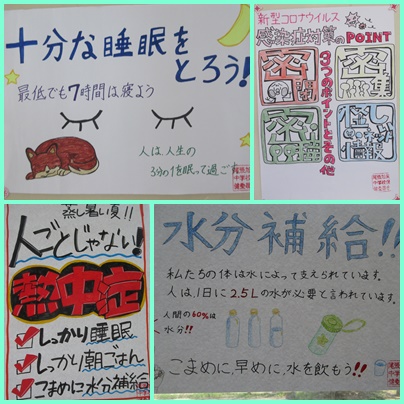 十分な睡眠を
とろう!!
最低でも7時間は寝よう
人は、人生の
3分の1を眠って過ごす
新型コロナウイルス
感染症対策のPOINT
3つのポイントとその他
密閉
密集
密
怪しい
情報
蒸し暑い夏!!
人ごとじゃない!
熱中症
しっかり睡眠
しっかり朝ごはん
こまめに水分補給
水分補給!!
私たちの体は水によって支えられています。
人は、1日に2.5Lの水が必要と言われています。
人間の60%は
水分!!
こまめに、早めに、水を飲もう!!